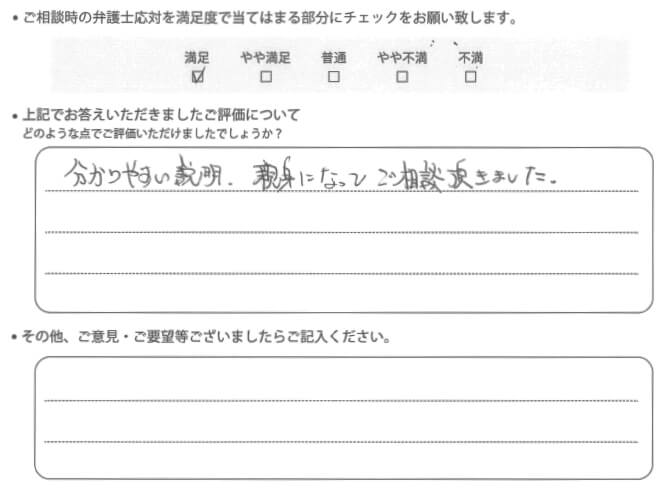 • ご相談時の弁護士応対を満足度で当てはまる部分にチェックをお願い致します。
満足 やや満足 普通 やや不満 不満
☑ □ □ □ □
• 上記でお答えいただきましたご評価について
どのような点でご評価いただけましたでしょうか？
分かりやすい説明、親身になってご相談頂きました。
• その他、ご意見・ご要望等ございましたらご記入ください。